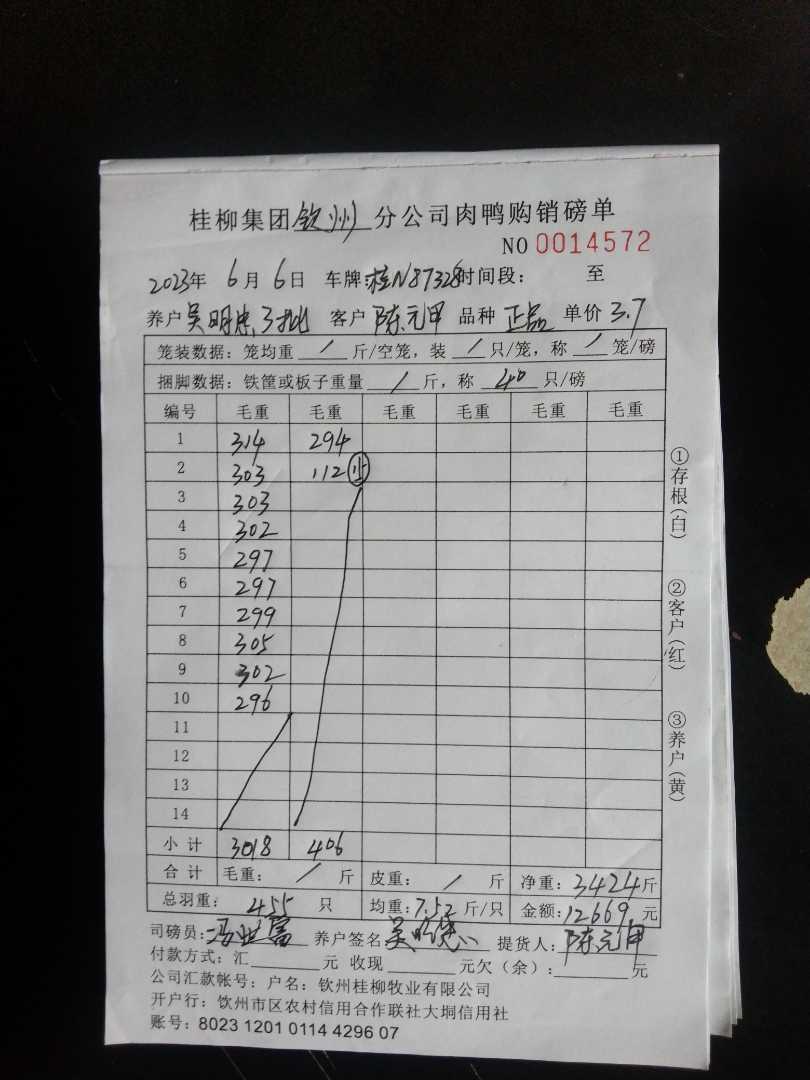 桂柳集团钦州分公司肉鸭购销磅单
NO 0014572
2023年 6月 6日 车牌:桂N87328时间段: 至
养户吴明忠3批 客户 陈元甲 品种 正品 单价 3.7
笼装数据:笼均重 / 斤/空笼,装 / 只/笼,称 / 笼/磅
捆脚数据:铁筐或板子重量 / 斤,称 40 只/磅
编号 毛重 毛重 毛重 毛重 毛重 毛重
1 314 294
2 303 112 ⑮
3 303
4 302
5 297
6 297
7 299
8 305
9 302
10 296
11
12
13
14
小计 3018 406
合计 毛重: / 斤 皮重: / 斤 净重:3424斤
总羽重: 455 只 均重:7.52斤/只 金额:12669元
司磅员: 养户签名 吴明忠 提货人:陈元甲
付款方式:汇 元 收现 元欠(余): 元
公司汇款帐号:户名:钦州桂柳牧业有限公司
开户行:钦州市区农村信用合作联社大垌信用社
账号:8023 1201 0114 4296 07
①存根(白)
②客户(红)
③养户(黄)